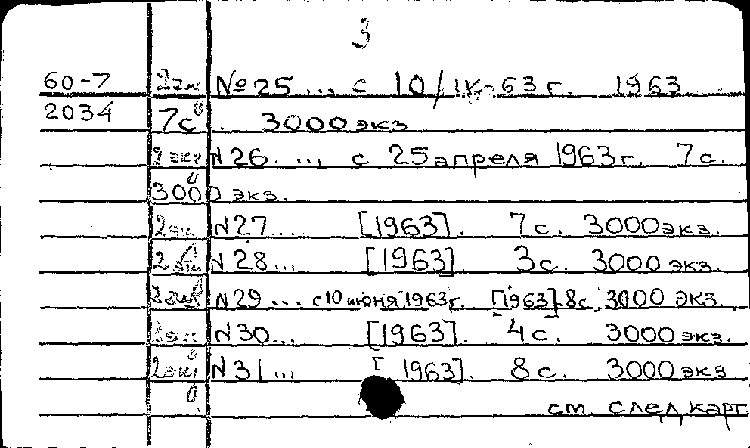 3
60-7 2экз №25 ... с 10/IV-63 г. 1963
2034 7с. 3000 экз
2 экз N26 ... с 25 апреля 1963 г. 7 с.
3000 экз.
2экз N27 ... [1963]. 7 с. 3000 экз.
2экз N28 ... [1963] 3 с. 3000 экз.
2экз N29 ... с 10 июня 1963 г. [1963] 8с. 3000 экз.
2экз N30 ... [1963]. 4 с. 3000 экз.
2экз N31 ... [1963]. 8 с. 3000 экз
см. след карт